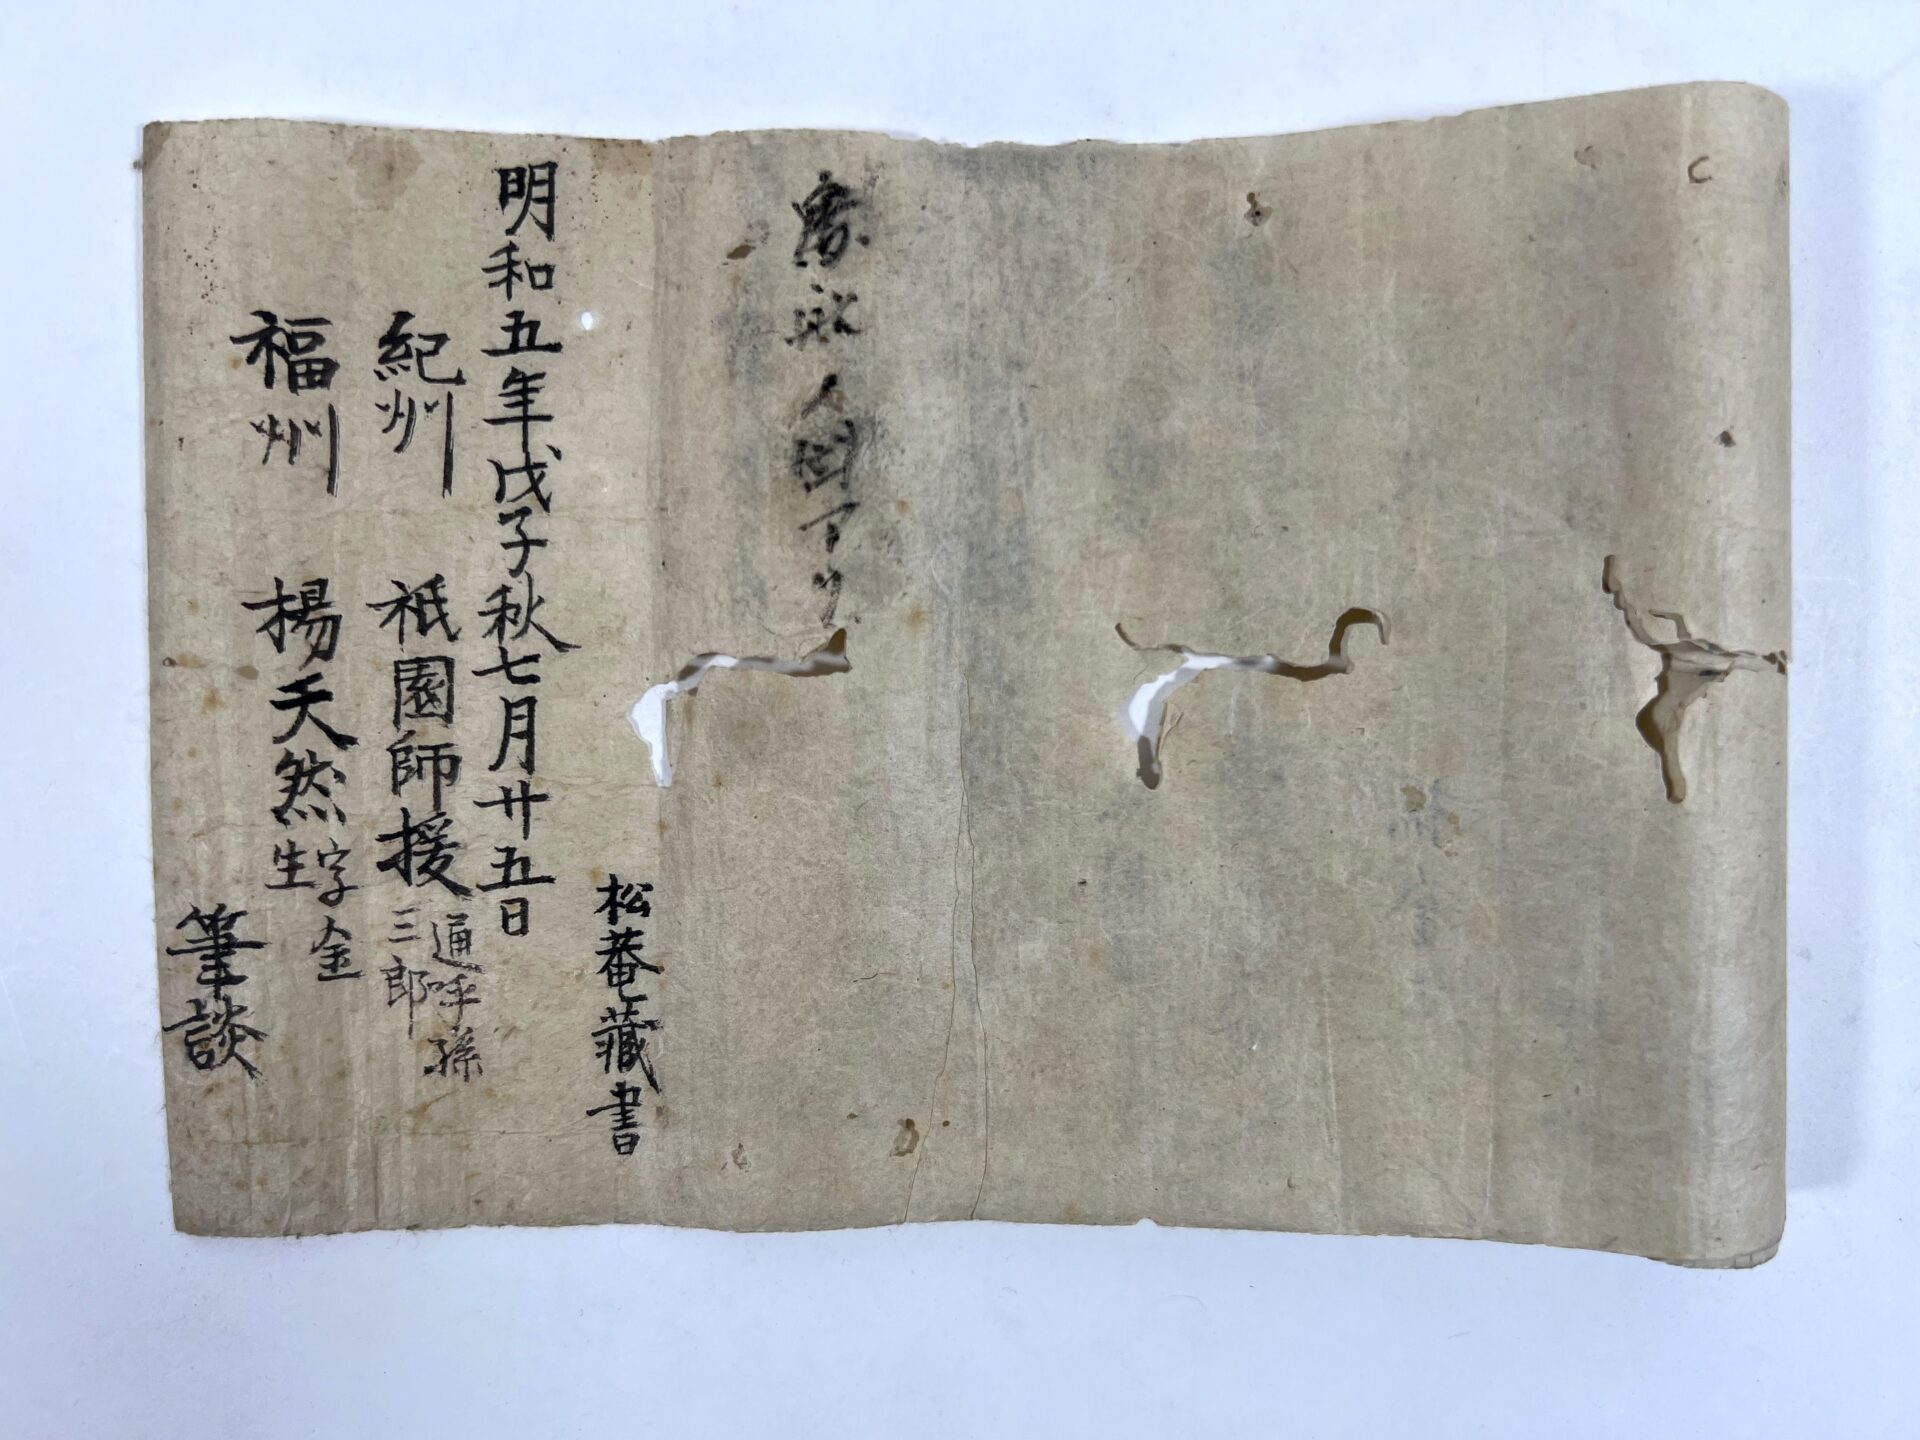 松菴藏書
明和五年戊子秋七月廿五日
紀州 祇園師援 通呼孫三郎
福州 楊天然 字金生
筆談